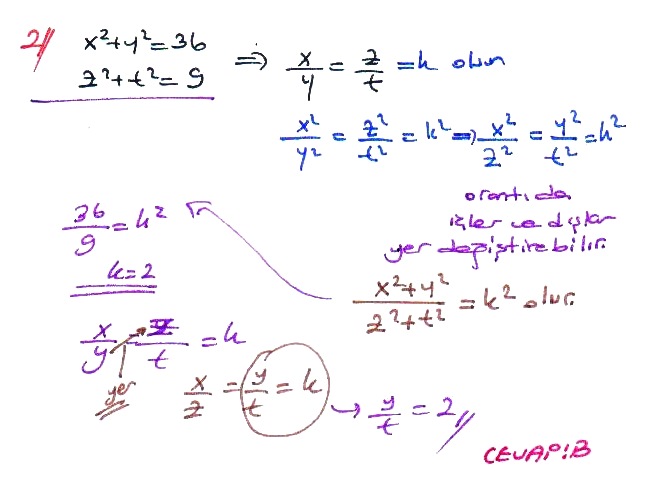 2) x²+y²=36
z²+t²=9 ⇒ x/y = z/t = k olsun
x²/y² = z²/t² = k² ⇒ x²/z² = y²/t² = k²
orantıda
içler ve dışlar
yer değiştirebilir.
36/9 = k²
k=2
x²+y²/z²+t² = k² olur.
x/y = z/t = k
yer
x/z = y/t = k → y/t = 2//
CEVAP:B